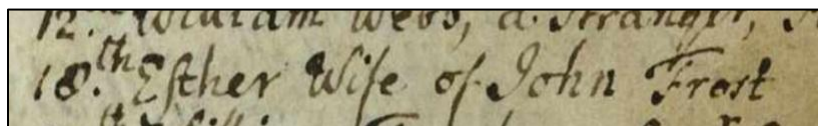 12. William Webb, a Stranger,
18.th Esther Wife of John Frost